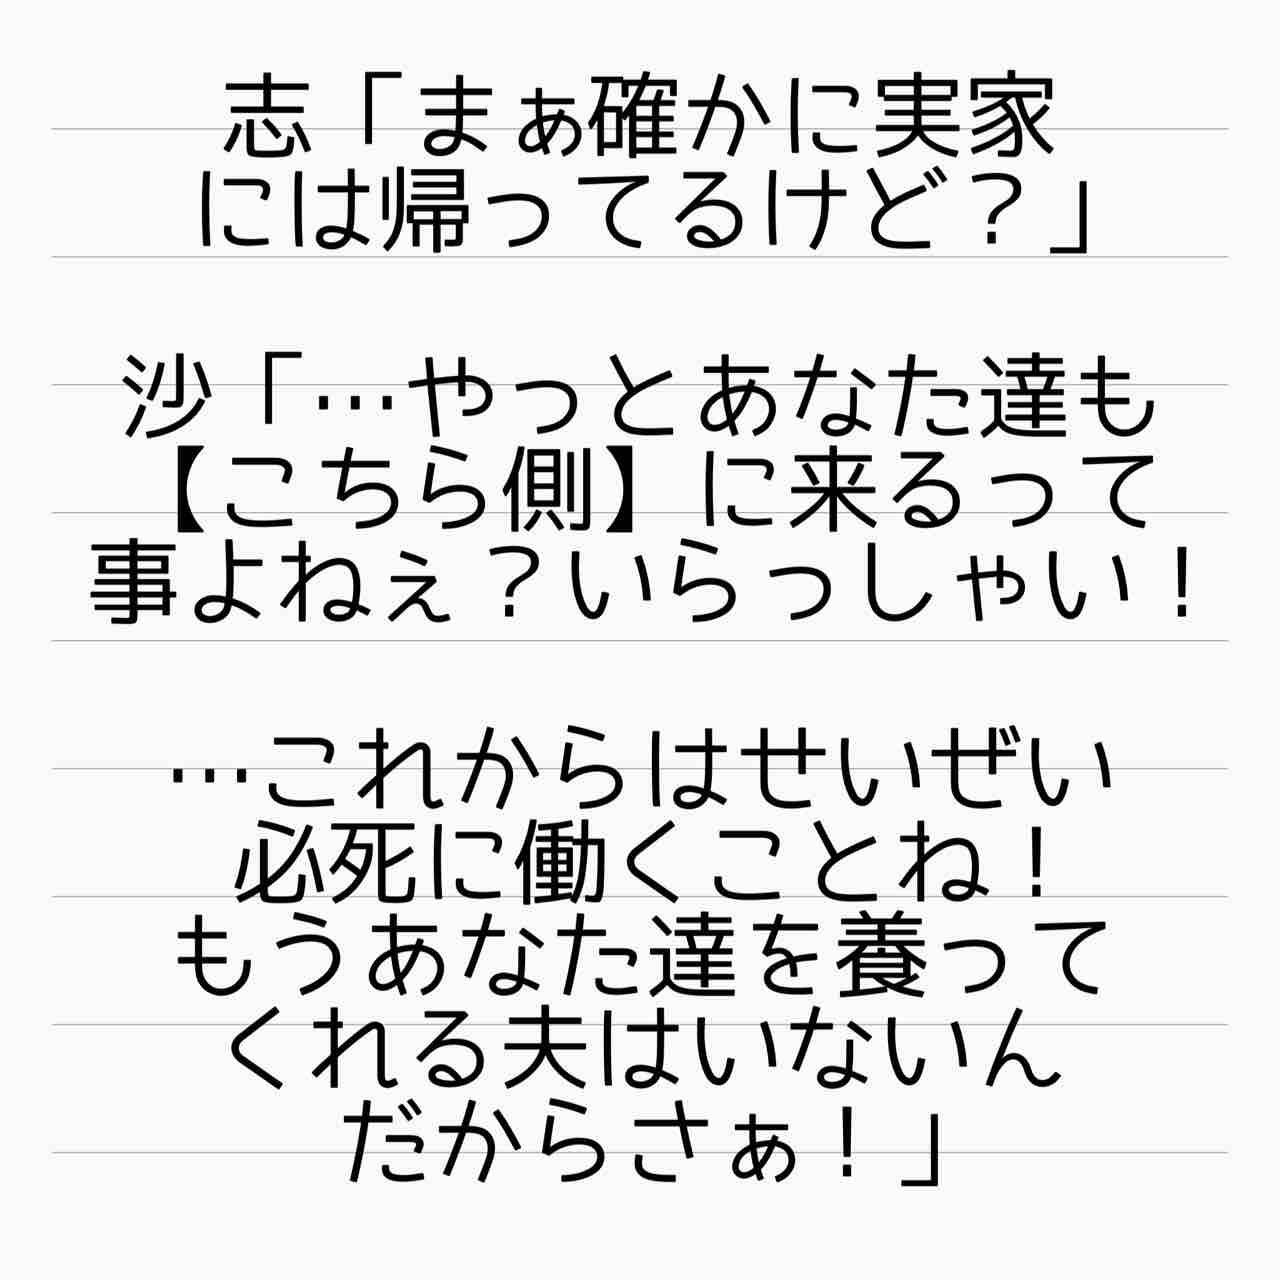 志「まぁ確かに実家
には帰ってるけど？」
沙「…やっとあなた達も
【こちら側】に来るって
事よねぇ？いらっしゃい！
…これからはせいぜい
必死に働くことね！
もうあなた達を養って
くれる夫はいないん
だからさぁ！」